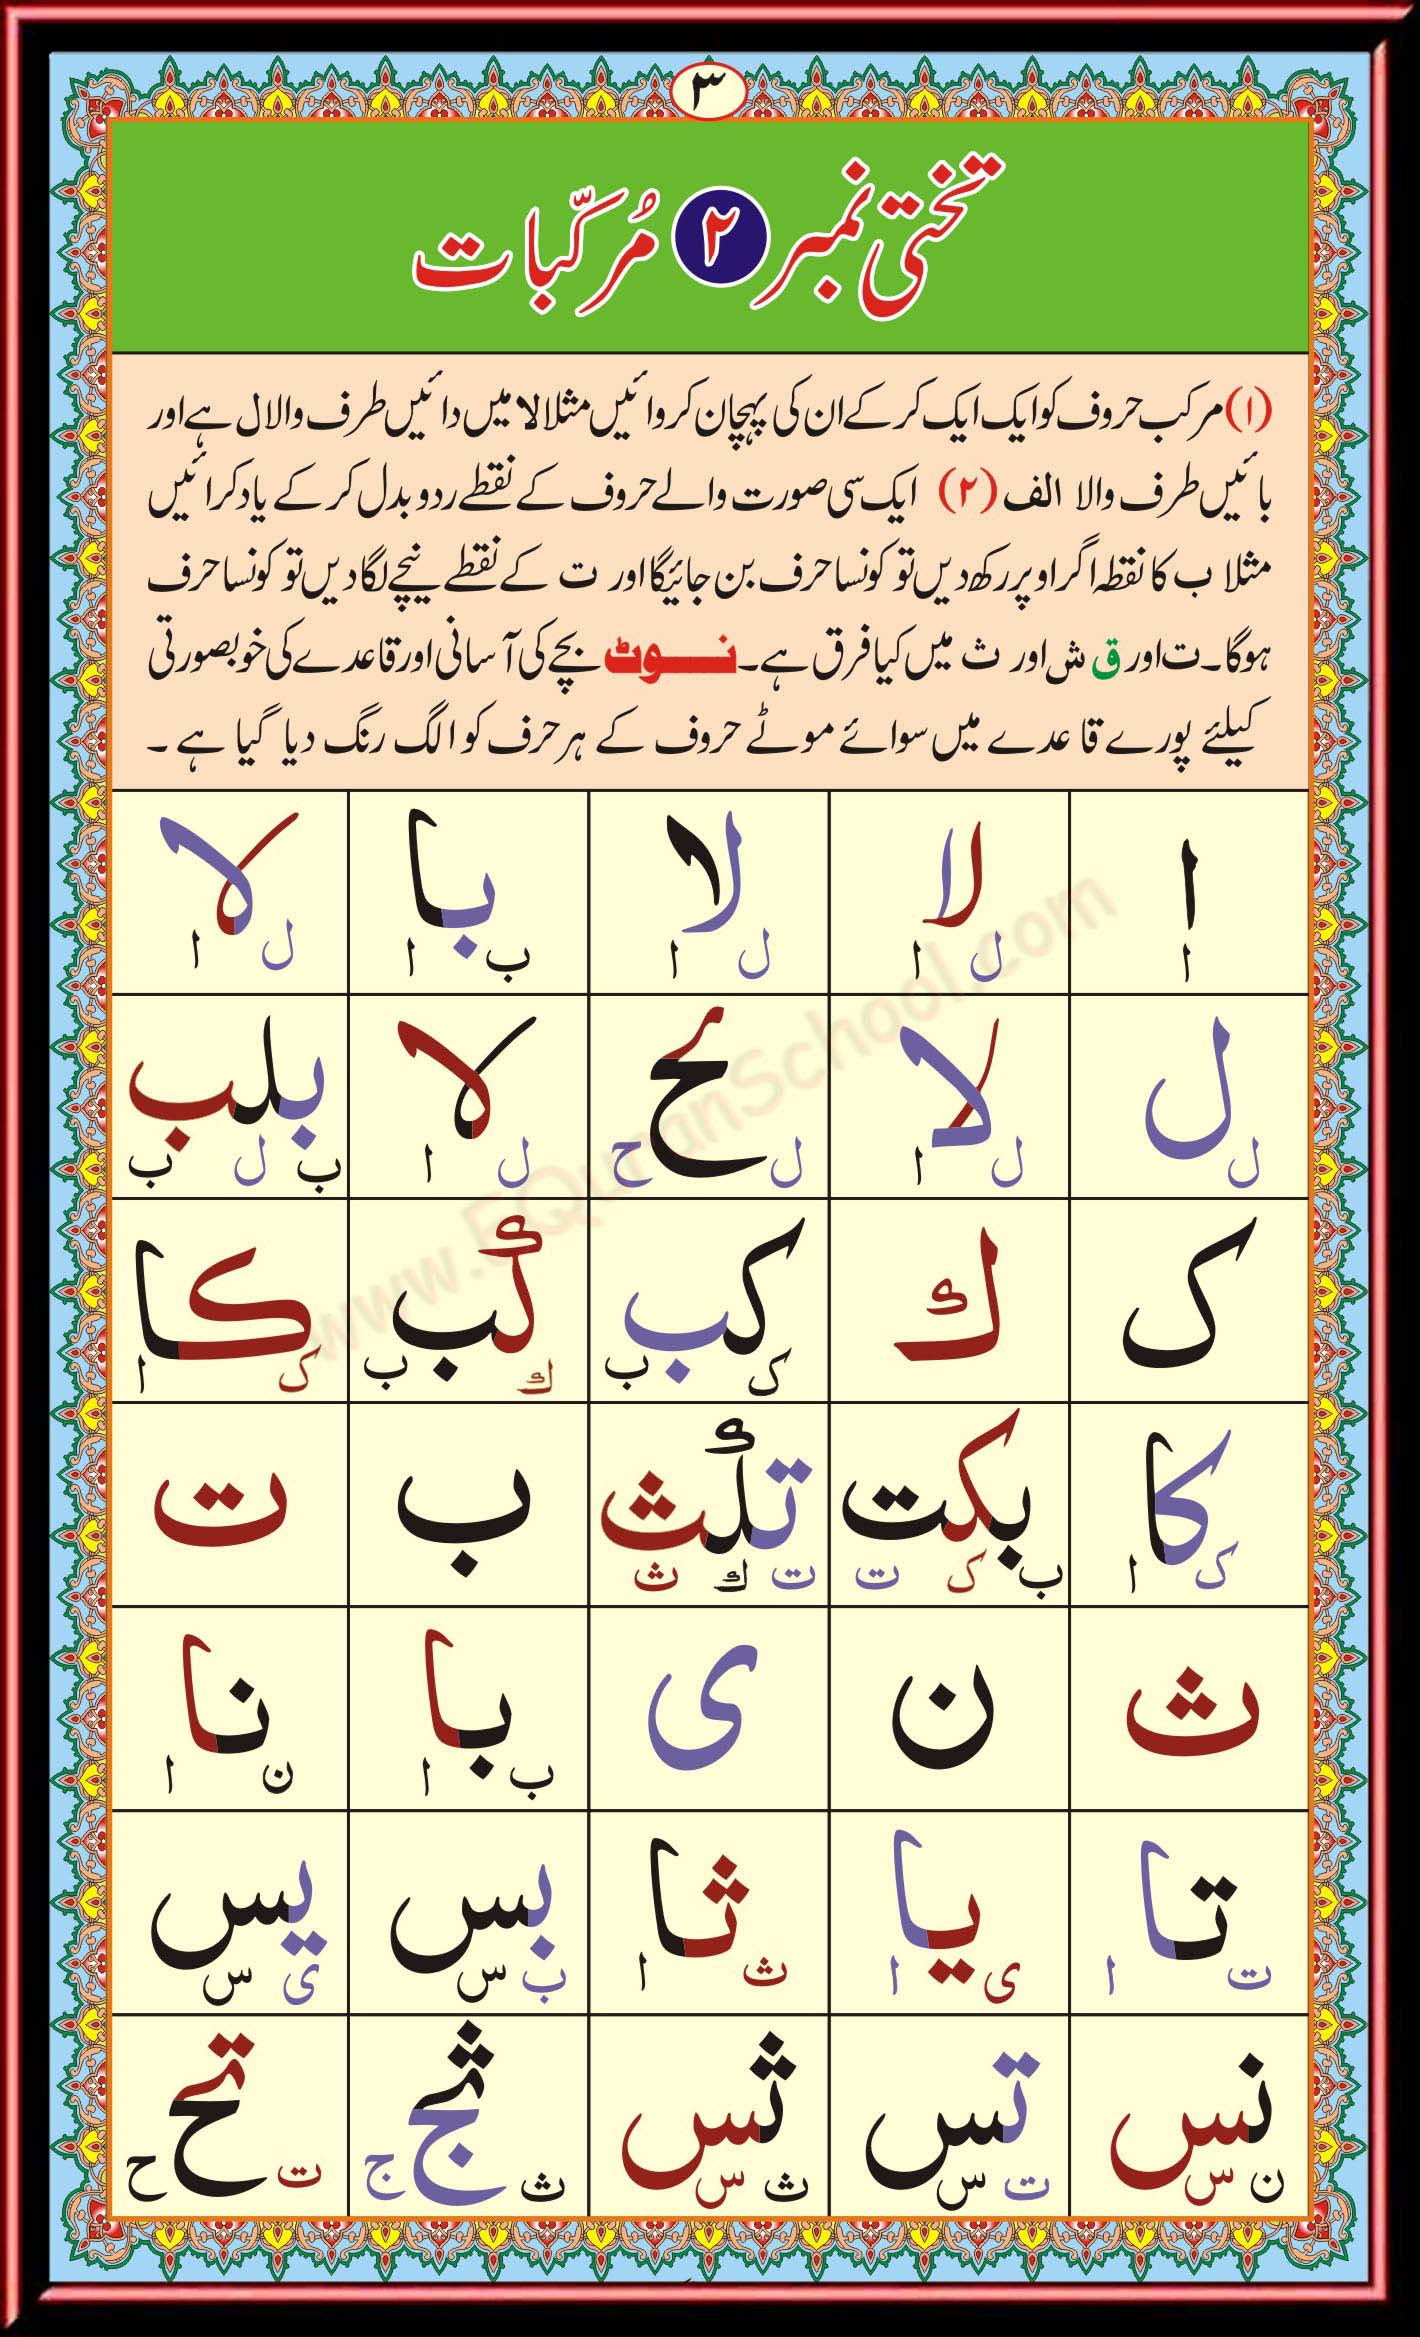 ٣
تختی نمبر ٢ مُرکّبات
(١) مرکب حروف کو ایک ایک کر کے ان کی پہچان کروائیں مثلا لا میں دائیں طرف والا ل ہے اور
بائیں طرف والا الف (٢) ایک سی صورت والے حروف کے نقطے ردوبدل کر کے یاد کرائیں
مثلا ب کا نقطہ اگر اوپر رکھ دیں تو کونسا حرف بن جائیگا اور ت کے نقطے نیچے لگا دیں تو کونسا حرف
ہوگا۔ ت اور ق ش اور ث میں کیا فرق ہے۔ نوٹ بچے کی آسانی اور قاعدے کی خوبصورتی
کیلئے پورے قاعدے میں سوائے موٹے حروف کے ہر حرف کو الگ رنگ دیا گیا ہے ۔
ا لا لا با لا
ا ل ا ل ا ب ا ل ا
ل لا لح لا بلب
ل ل ا ل ح ل ا ب ل ب
ک ك کب كب کا
ک ب ك ب ک ا
کا بکت تكث ب ت
ک ا ب ک ت ت ك ث
ث ن ی با نا
ب ا ن ا
تا یا ثا بس یس
ت ا ی ا ث ا ب س ی س
نس تس ثس ثج تح
ن س ت س ث س ث ج ت ح
www.EQuranSchool.com